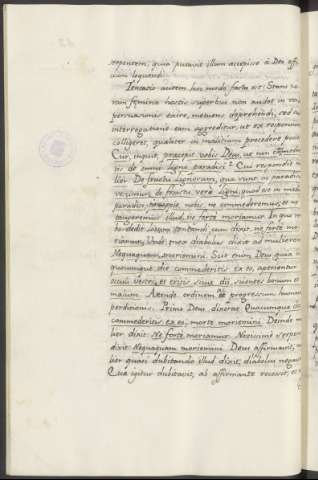 serpentem, quia putavit illum accepisse à Deo offi
cium loquendi.
Tentatio autem hoc modo facta est: Stans co
ram femina hostis superbus non audet in ver
persuasionis exire, metuens deprehendi, sed su
interrogatione eam aggreditur, ut ex responsione
colligeret, qualiter in malitiam procedere posset
Cur, inquit, præcepit vobis Deus, ut non comedere
tis de omni ligno paradisi? Cui respondit mu
lier: De fructu lignorum, quæ sunt in paradiso
vescimur; de fructu verò ligni, quod est in medio
paradisi, præcepit nobis, ne comederemus, et ne
tangeremus illud, ne fortè moriamur. In quo ver
bo dedit locum tentandi cum dixit, ne fortè mo
riamur. Unde mox diabolus dixit ad mulierem
Nequaquam moriemini. Scit enim Deus, quia in
quocumque die comederitis ex eo, aperientur
oculi vestri, et eritis sicut dii, scientes bonum et
malum. Attende ordinem, et progressum humanæ
perditionis. Primò Deus dixerat: Quacumque die
comederitis ex eo, morte moriemini. Deinde mu
lier dixit: Ne fortè moriamur. Novissimè serpens
dixit: Nequaquam moriemini. Deus affirmavit, mu
lier quasi dubitando illud dixit, diabolus negavit
Quæ igitur dubitavit, ab affirmante recessit, et